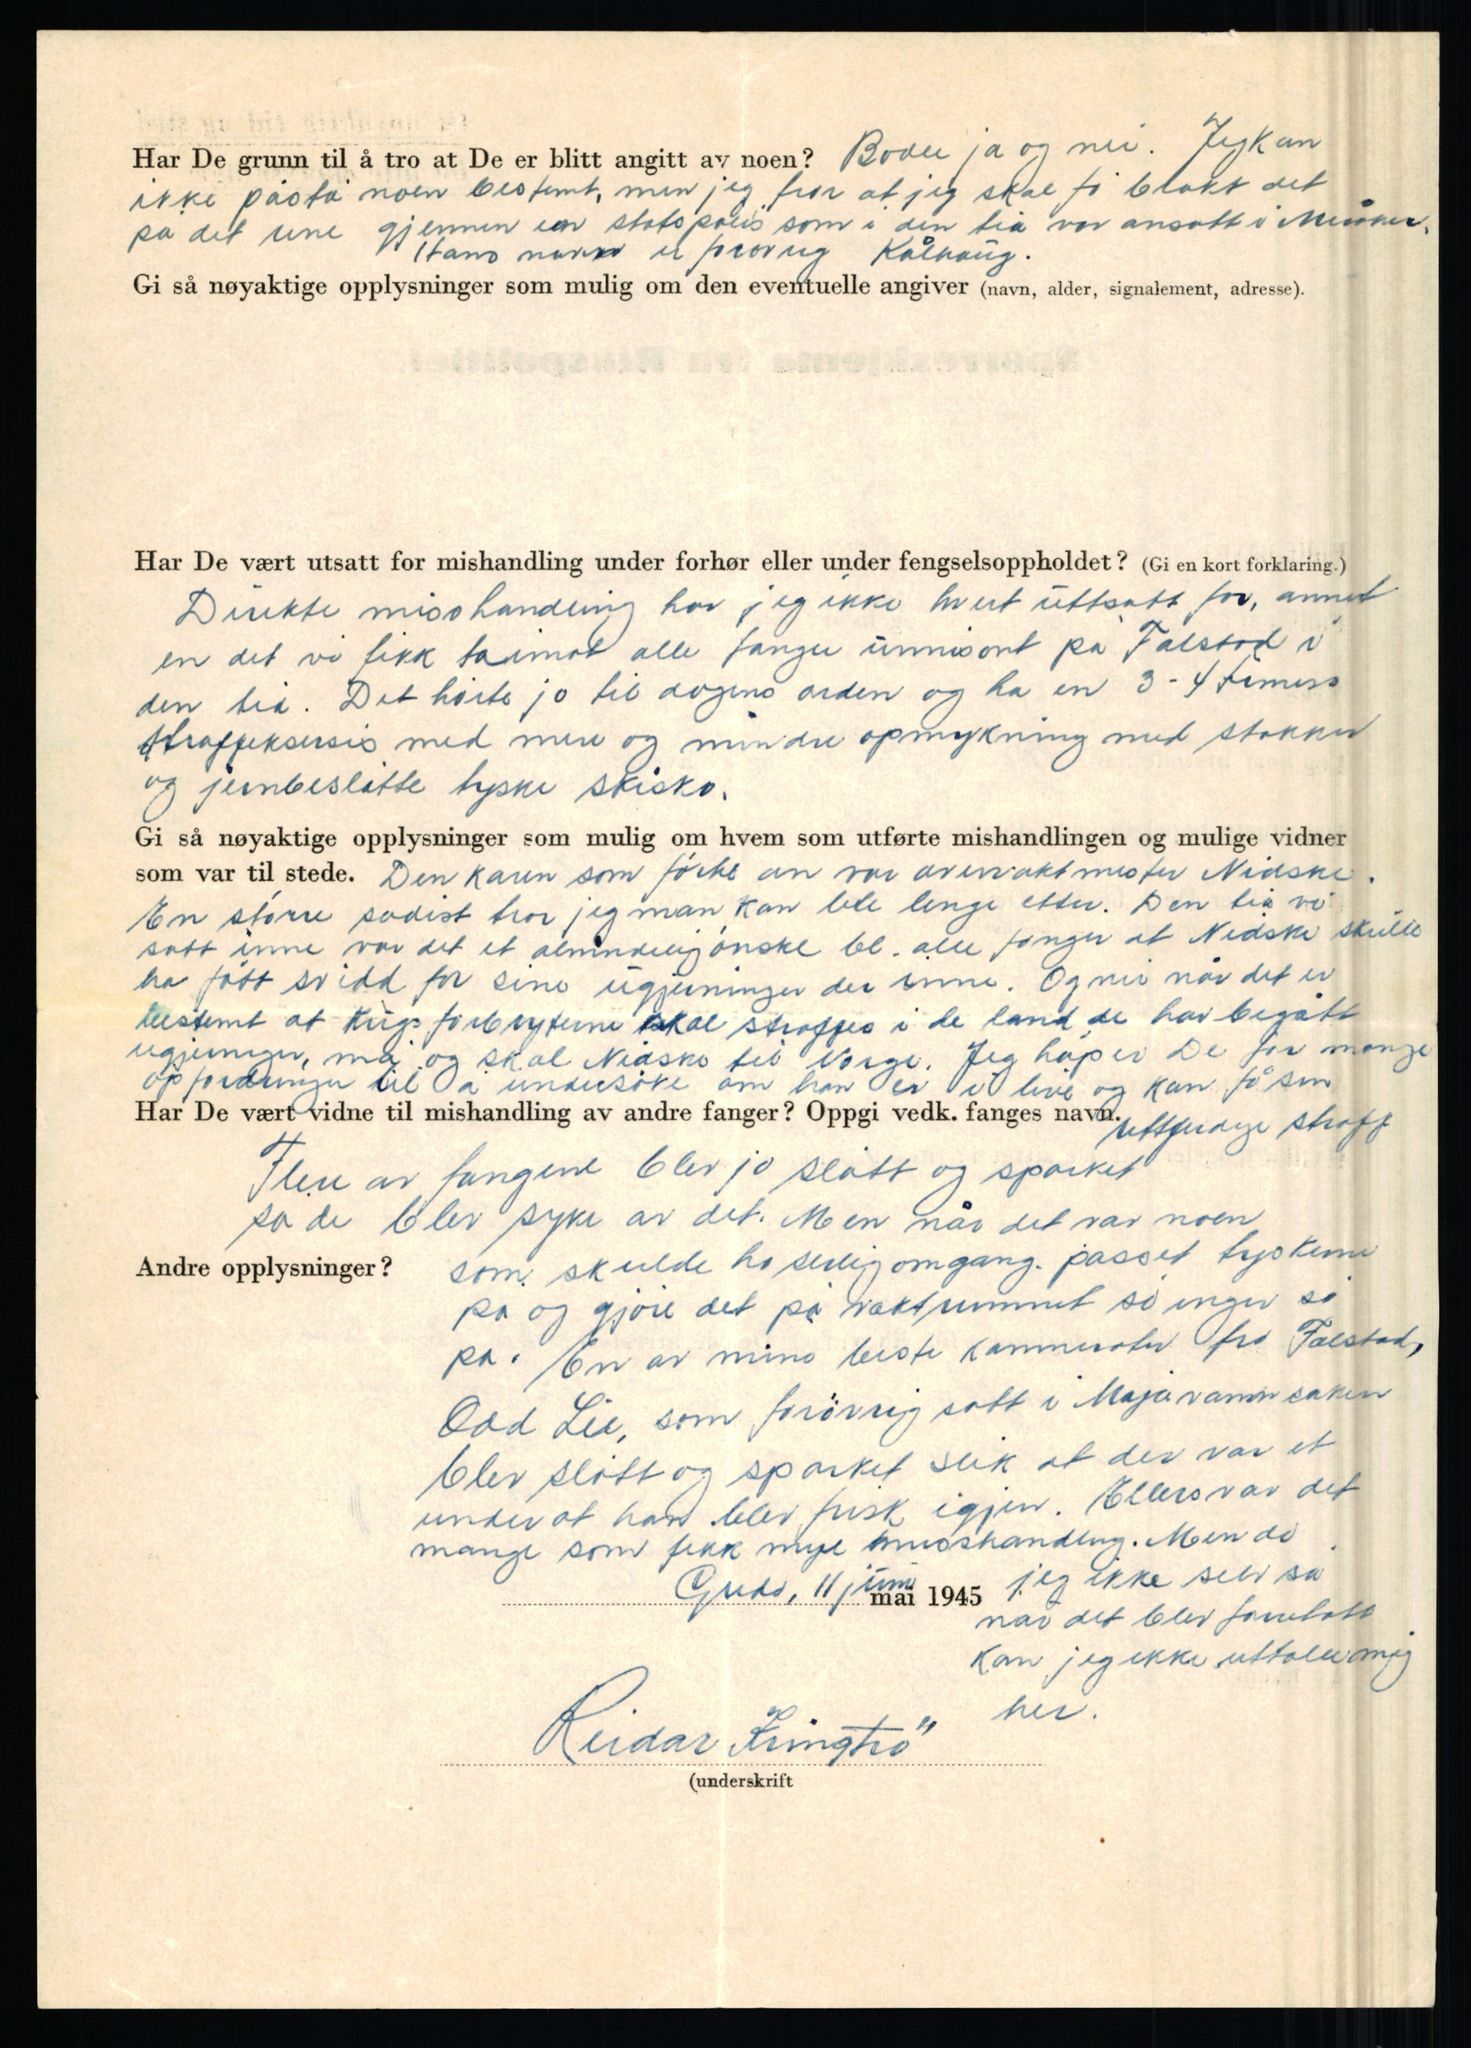 Har De grunn til å tro at De er blitt angitt av noen? Bode ja og nei. Jeg kan
ikke påstå noen bestemt, men jeg tror at jeg skal få brakt det
på det rene gjennem en statspolis som i den tia var ansatt i Meråker.
Hans navn er forøvrig Kålhaug.
Gi så nøyaktige opplysninger som mulig om den eventuelle angiver (navn, alder, signalement, adresse).
Har De vært utsatt for mishandling under forhør eller under fengselsoppholdet? (Gi en kort forklaring.)
Direkte misshandling har jeg ikke hvert uttsatt for, annet
en det vi fikk taimot alle fanger unnisont på Falstad i
den tia. Det hørte jo til dagens orden og ha en 3-4 timers
straffeksersis med mere og mindre opmykning med stokker
og jernbeslåtte tyske skisko.
Gi så nøyaktige opplysninger som mulig om hvem som utførte mishandlingen og mulige vidner
som var til stede. Den karen som førte an var overvaktmester Nidske.
En større sadist tror jeg man kan lete lenge etter. Den tia vi
satt inne var det et almindelig ønske bl. alle fanger at Nidske skulle
ha fått svidd for sine ugjerninger der inne. Og nei når det er
bestemt at krigsforbryterne skal straffes i de land de har begått
ugjerninger, må og skal Nidske til Norge. Jeg håper De får mange
opfordringer til å undersøke om han er i live og kan få sin
rettferdige straff
Har De vært vidne til mishandling av andre fanger? Oppgi vedk. fanges navn.
Flere av fangene blev jo slått og sparket
så de blev syke av det. Men når det var noen
Andre opplysninger? som skulde ha serlig omgang. passet tyskerne
på og gjøre det på vaktrummet så inger så
på. En av mine beste kammerater fra Falstad,
Odd Lie, som forøvrig satt i Majavannsaken
blev slått og sparket slik at der var et
under at han blev frisk igjen. Ellers var det
mange som fikk mye misshandling. Men da
jeg ikke selv så
når det blev forretatt
kan jeg ikke uttale mig
her.
Gudå, 11 juni mai 1945
Reidar Kringtrö
(underskrift